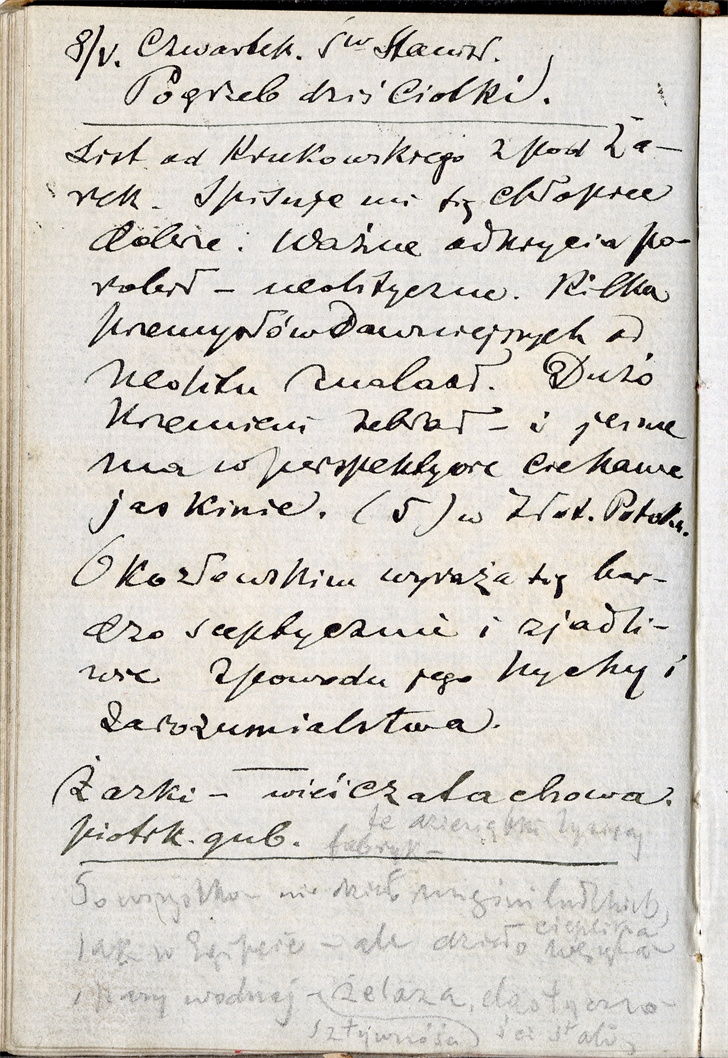 8/V. Czwartek. św Stanisł.
Pogrzeb dziś Ciołki.
List od Krukowskiego z pod Ża-
rek. Spisuje mi się chłopiec
dobrze. Ważne odkrycia po-
robił – neolityczne. Kilka
przemysłów dawniejszych od
neolitu znalazł. Dużo
krzemieni zebrał – i jeszcze
ma w perspektywie ciekawe
jaskinie. (5) w Złot. Potoku.
O Kozłowskim wyraża się bar-
dzo sceptycznie i zjadli-
wie z powodu jego pychy i
zarozumialstwa.
Żarki – wieś czatachowa.
piotrk. gub.
te dziesiątki tysięcy
fabryk –
To wszystko – nie dzieło mięśni ludzkich,
jak w Egipcie – ale dzieło
cieplika
i pary wodnej – żelaza, elastyczno-
sztywności ści stali